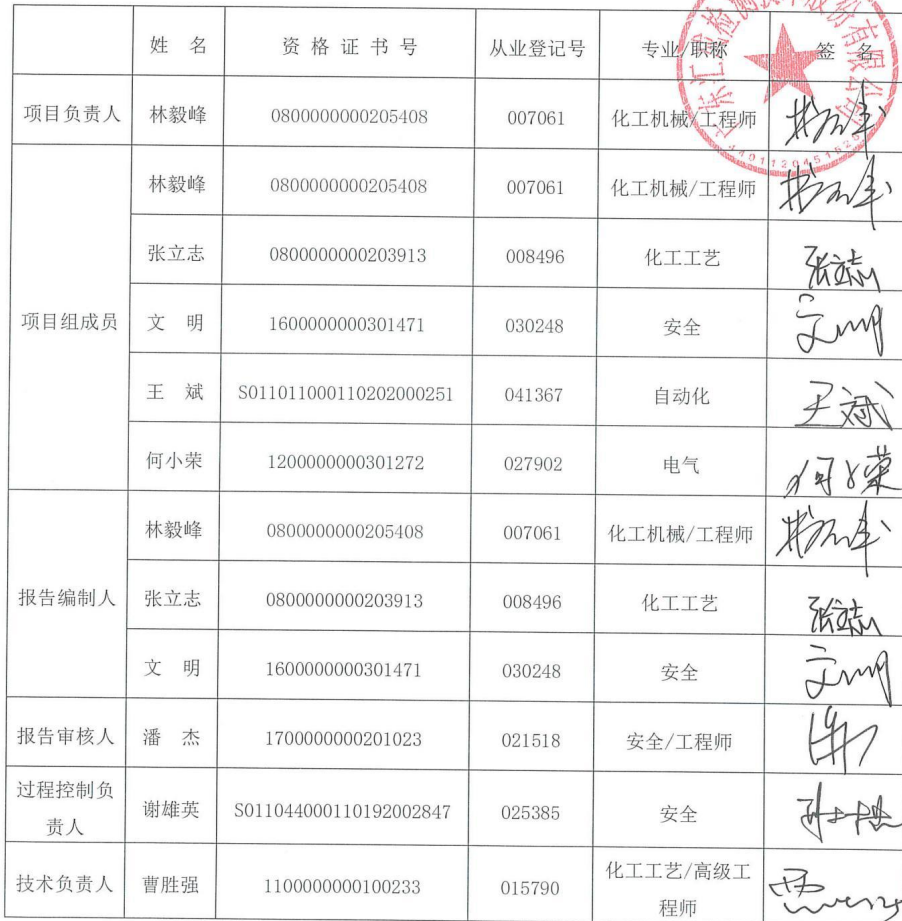 姓 名 资 格 证 书 号 从业登记号 专业/职称 签 名
项目负责人 林毅峰 0800000000205408 007061 化工机械/工程师
项目组成员 林毅峰 0800000000205408 007061 化工机械/工程师
张立志 0800000000203913 008496 化工工艺 张立志
文 明 1600000000301471 030248 安全 文明
王 斌 S011011000110202000251 041367 自动化 王斌
何小荣 1200000000301272 027902 电气 何小荣
报告编制人 林毅峰 0800000000205408 007061 化工机械/工程师
张立志 0800000000203913 008496 化工工艺 张立志
文 明 1600000000301471 030248 安全 文明
报告审核人 潘 杰 1700000000201023 021518 安全/工程师
过程控制负
责人 谢雄英 S011044000110192002847 025385 安全
技术负责人 曹胜强 1100000000100233 015790 化工工艺/高级工
程师